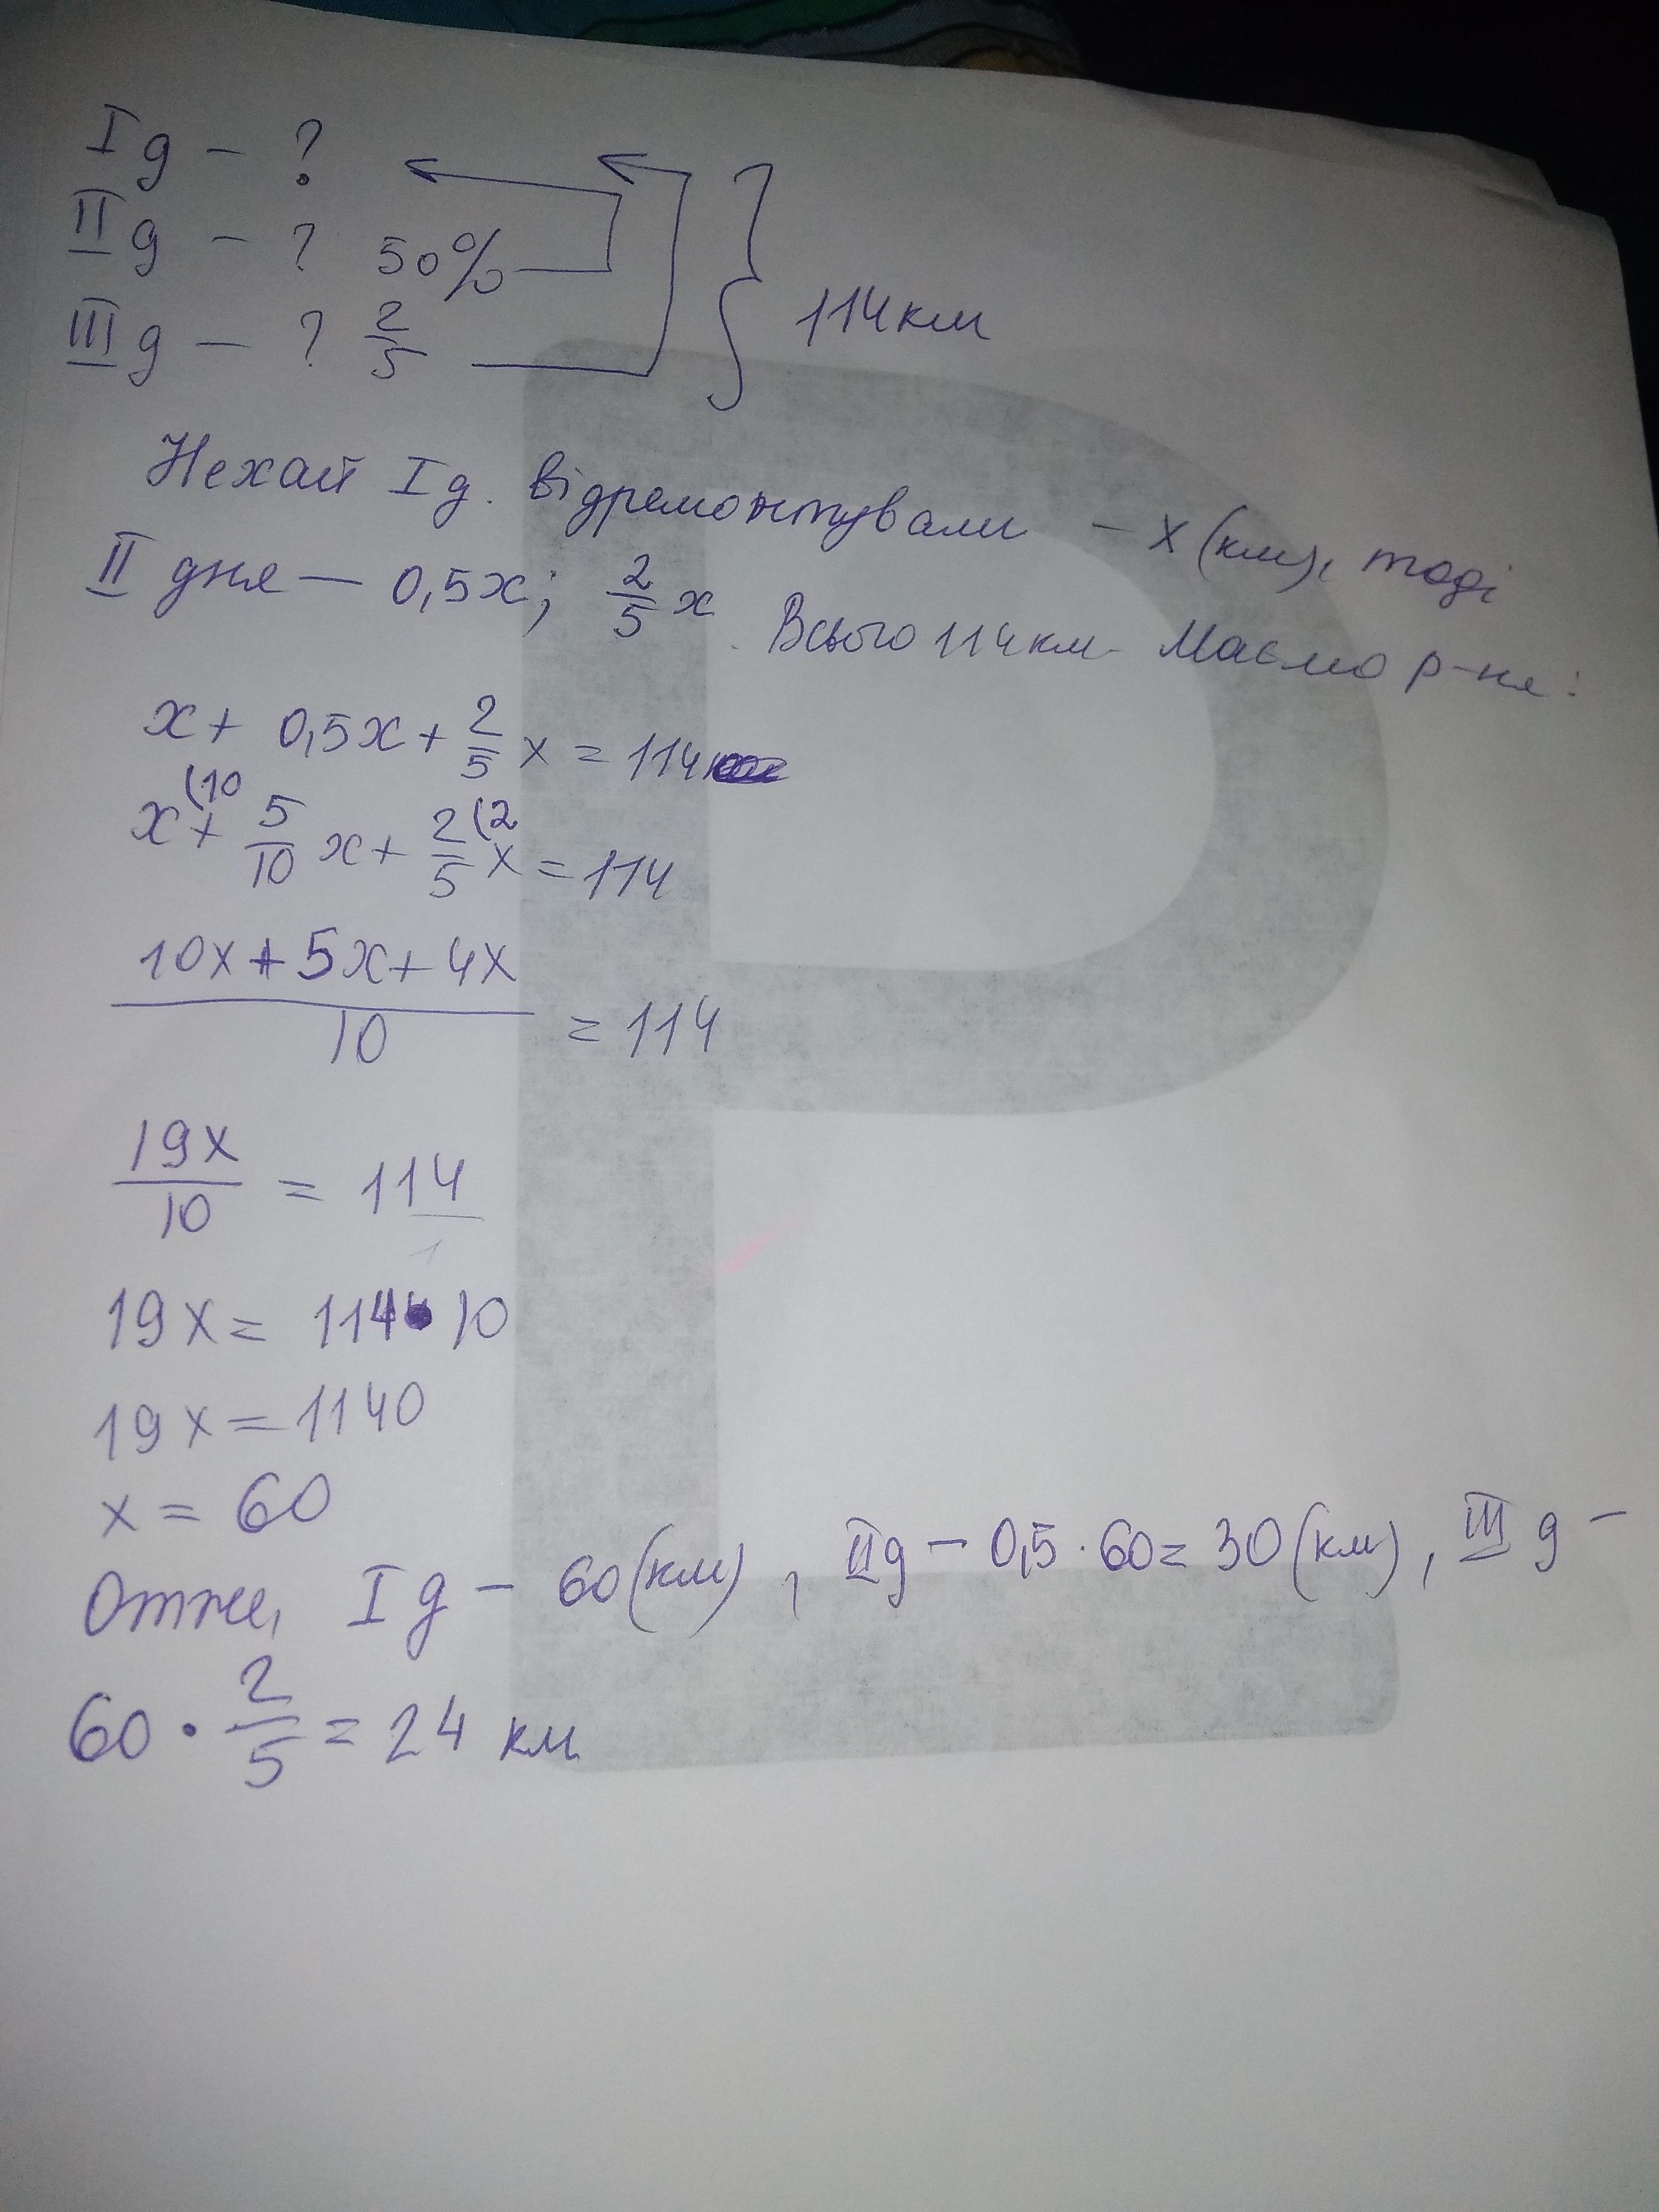 I д - ?
II д - ? 50%
III д - ? 2/5
114 км
Нехай I д. відремонтували - х (км), тоді
II дня - 0,5х; 2/5 х. Всього 114 км. Маємо р-ня:
х + 0,5х + 2/5 х = 114
х (10 + 5/10 х + 2/5 (2 х = 114
10х + 5х + 4х / 10 = 114
19х / 10 = 114
19х = 114 • 10
19х = 1140
х = 60
Отже, I д - 60 (км), II д - 0,5 · 60 = 30 (км), III д -
60 · 2/5 = 24 км